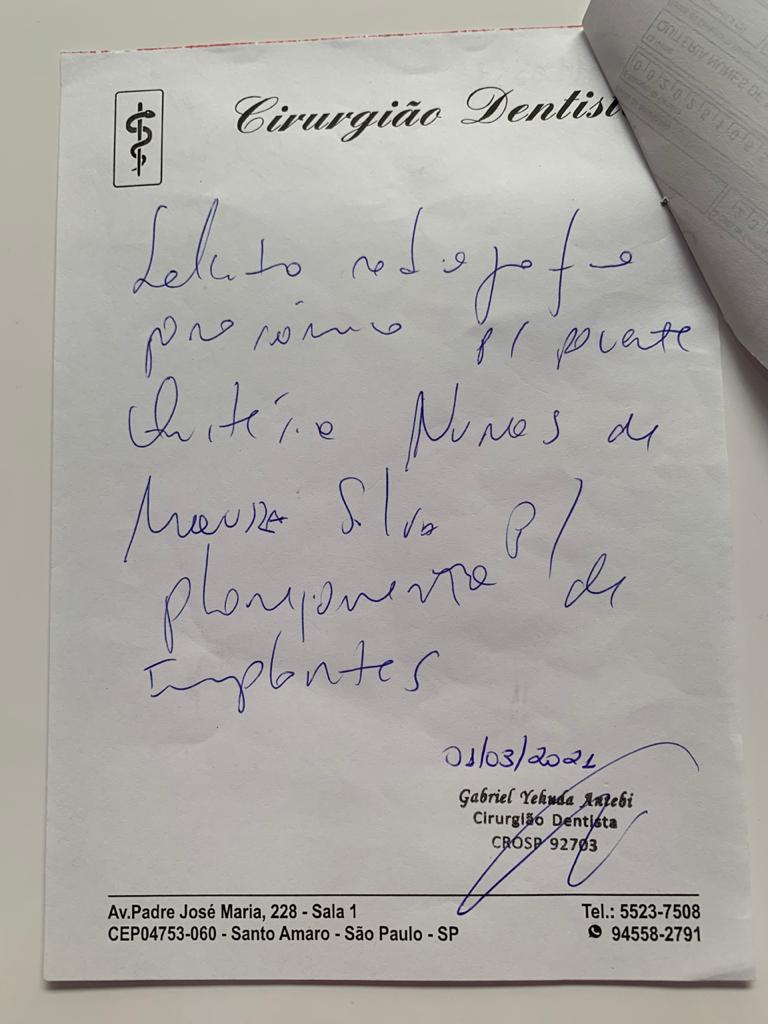 Cirurgião Dentist
Solicito radiografia
panorâmica p/ paciente
Quitéria Nunes de
Moura Silva p/
planejamento de
Implantes
01/03/2021
Gabriel Yehuda Antebi
Cirurgião Dentista
CROSP 92703
Av.Padre José Maria, 228 - Sala 1
CEP04753-060 - Santo Amaro - São Paulo - SP
Tel.: 5523-7508
94558-2791